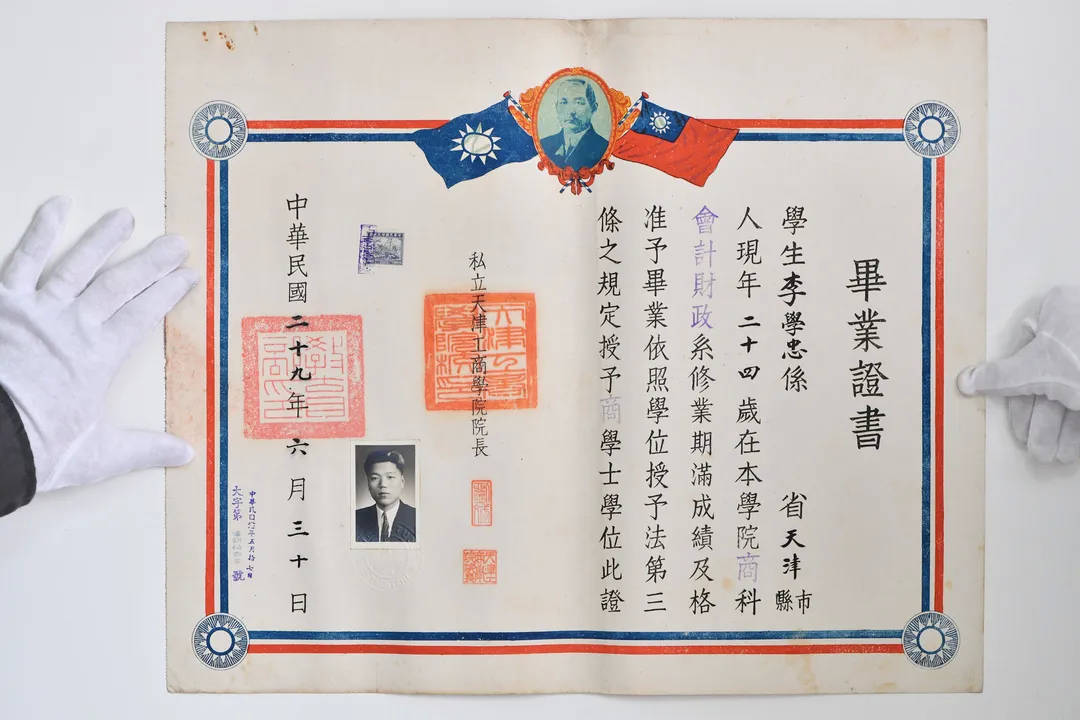 畢業證書
學生李學忠係　省天津市縣
人現年二十四歲在本學院商科
會計財政系修業期滿成績及格
准予畢業依照學位授予法第三
條之規定授予商學士學位此證
私立天津工商學院院長
中華民國二十九年六月三十日
大字第　號